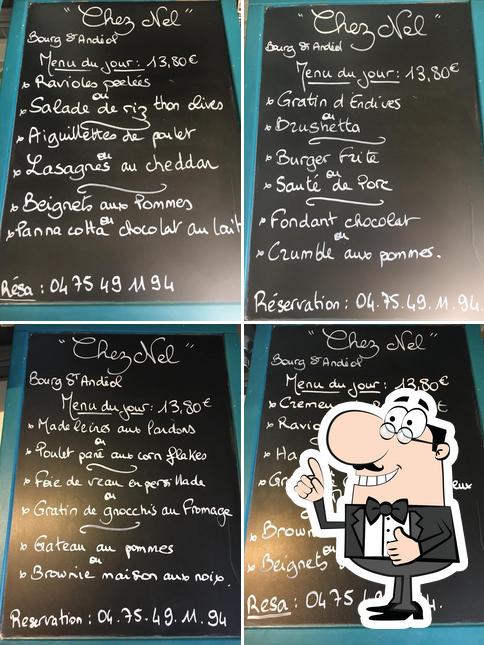 "Chez Nel"
Bourg St Andéol
Menu du jour : 13,80€
Ravioles poêlées
ou
Salade de riz thon olives
Aiguillettes de poulet
ou
Lasagnes au cheddar
Beignets aux Pommes
ou
Panna cotta chocolat au lait
Résa : 04 75 49 11 94
"Chez Nel"
Bourg St Andéol
Menu du jour : 13,80€
Gratin d'Endives
ou
Brushetta
Burger frite
ou
Sauté de Porc
Fondant chocolat
ou
Crumble aux pommes.
Réservation : 04.75.49.11.94.
"Chez Nel"
Bourg St Andéol
Menu du jour : 13,80€
Madeleines aux lardons
ou
Poulet pané aux corn flakes
Foie de veau en persillade
ou
Gratin de gnocchis au fromage
Gateau au pommes
ou
Brownie maison aux noix.
Reservation : 04.75.49.11.94
"Chez Nel"
Bourg St Andéol
Menu du jour : 13,80€
Beignets
Resa : 04 75